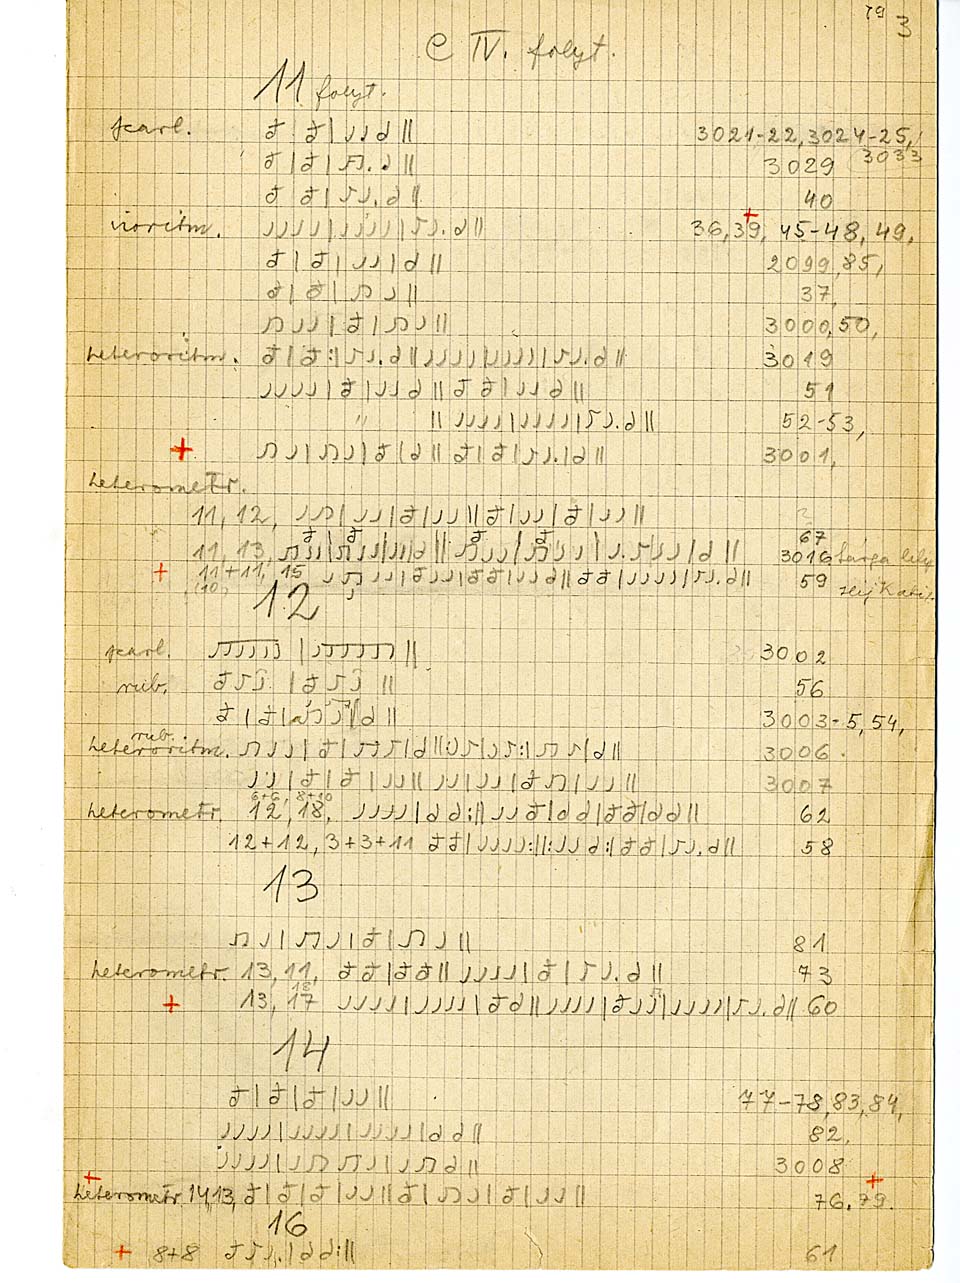 79 3
C IV. folyt.
11 folyt.
parl. 3021-22, 3024-25,
3029 3033
40
izoritm. 36, 39, 45-48, 49,
2099, 85,
37,
3000, 50,
heteroritm. 3019
51
" 52-53,
+ 3001,
heterometr.
11, 12,
67
11, 13, 3016 Sárga
+ 11+11, 15 59
(10)
12
parl. 3002
rub. 56
3003-5, 54,
rub.
heteroritm. 3006
3007
6+6, 8+10
heterometr. 12, 18, 62
12+12, 3+3+11 58
13
81
heterometr. 13, 11, 73
18
+ 13, 17 60
14
77-78, 83, 84,
82,
3008
heterometr. 14, 13, 76, 79.
16
+ 8+8 61